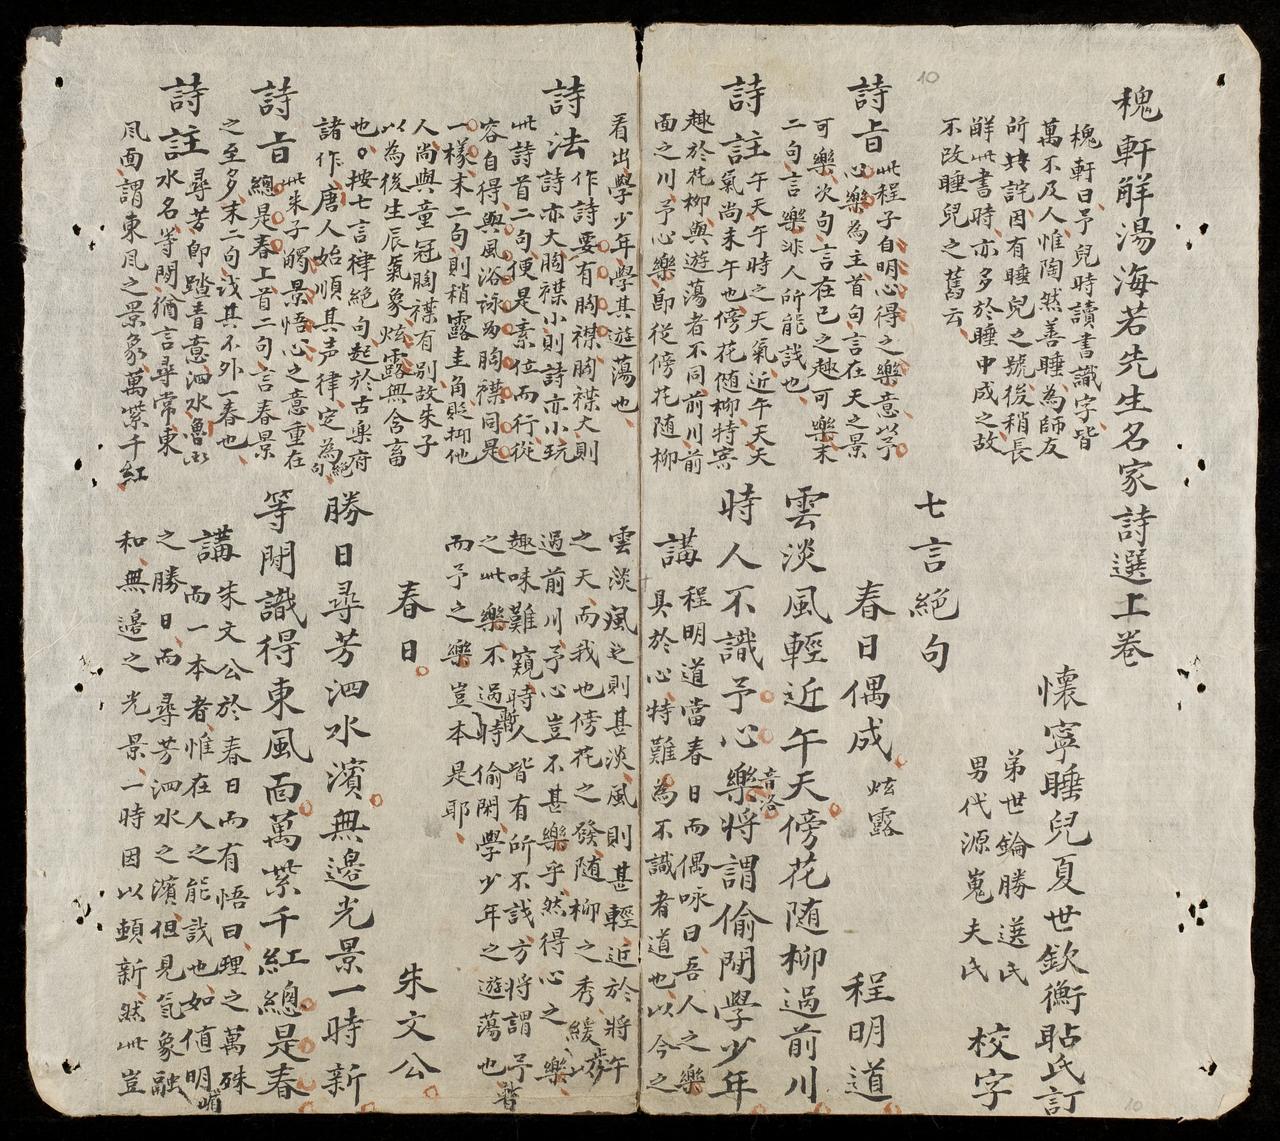 槐軒解湯海若先生名家詩選上卷
懷寧睡兒夏世欽衡貼氏訂
槐軒曰予兒時讀書識字皆
萬不及人惟陶然善睡為師友
所共詫因有睡兒之號後稍長
解此書時亦多於睡中成之故
不改睡兒之舊云
弟世錀勝選氏
男代源嵬夫氏
校字
七言絕句
春日偶成 炫露
程明道
詩旨
此程子自明心得之樂意以予
心樂為主首句言在天之景
可樂次句言在己之趣可樂末
二句言樂非人所能識也
雲淡風輕近午天傍花随柳過前川
時人不識予心樂將謂偷閒學少年
音洛
詩註
午天午時之天氣近午天天
氣尚未午也傍花随柳特寄
趣於花柳與遊蕩者不同前川前
面之川予心樂即從傍花随柳
看出學少年學其遊蕩也
講
程明道當春日而偶咏曰吾人之樂
具於心特難為不識者道也以今之
雲淡風也則甚淡風則甚輕近於將午
之天而我也傍花之發随柳之秀緩步以
過前川予心豈不甚樂乎然得心之樂
趣味難窺時人皆有所不識方將謂予
之此樂不過暫時偷閑學少年之遊蕩也
而予之樂豈本是耶
詩法
作詩要有胸襟胸襟大則
詩亦大胸襟小則詩亦小玩
此詩首二句便是素位而行從
容自得與風浴詠為胸襟同是
一樣末二句則稍露圭角貶抑他
人尚與童冠胸襟有別故朱子
以為後生辰氣象炫露無含畜
也按七言律絕句起於古樂府
諸作唐人始順其声律定為絕句
春日
朱文公
詩旨
此朱子觸景悟心之意重在
總是春上首二句言春景
之至多末二句識其不外一春也
勝日尋芳泗水濱無邊光景一時新
等閒識得東風面萬紫千紅總是春
詩註
尋芳即踏青意泗水魯山
水名等閒猶言尋常東
風面謂東風之景象萬紫千紅
講
朱文公於春日而有悟曰理之萬殊
而一本者惟在人之能識也如值明媚
之勝日而尋芳泗水之濱但見氣象融
和無邊之光景一時因以頓新然此豈